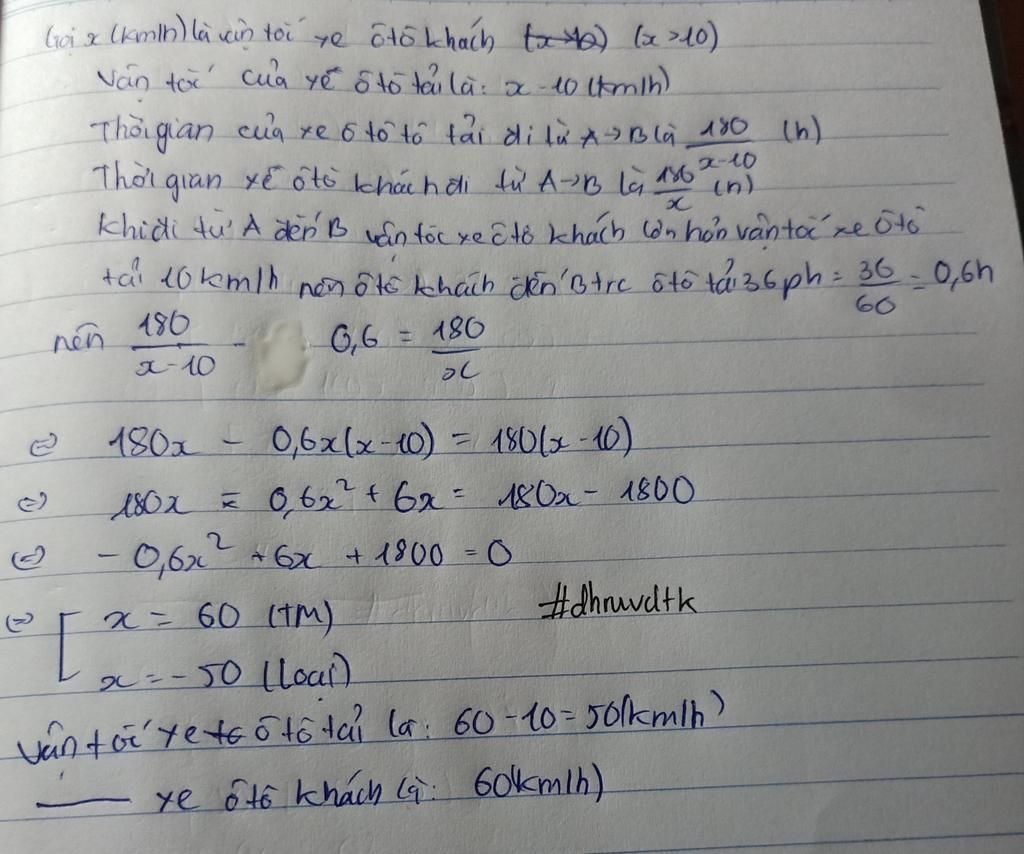 Gọi x (km/h) là vận tốc xe ôtô khách (x>10) (x>10)
Vận tốc của xe ôtô tải là: x-10 (km/h)
Thời gian của xe ô tô tô tải đi từ A→B là 180/x-10 (h)
Thời gian xe ôtô khách đi từ A→B là 180/x (h)
Khi đi từ A đến B vận tốc xe ôtô khách lớn hơn vận tốc xe ôtô
tải 10km/h nên ôtô khách đến B trc ôtô tải 36ph = 36/60 = 0,6h
nên 180/x-10 - 0,6 = 180/x
⇔ 180x - 0,6x(x-10) = 180(x-10)
⇔ 180x = 0,6x² + 6x = 180x - 1800
⇔ -0,6x² + 6x + 1800 = 0
⇔ [ x = 60 (TM)
x = -50 (loại)
#dhruvdtk
Vận tốc xe tô ôtô tải là: 60-10=50(km/h)
—— xe ôtô khách là: 60(km/h)